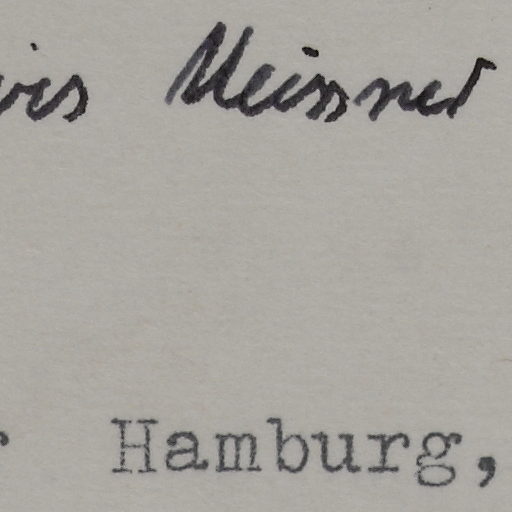 Meissner
Hamburg,